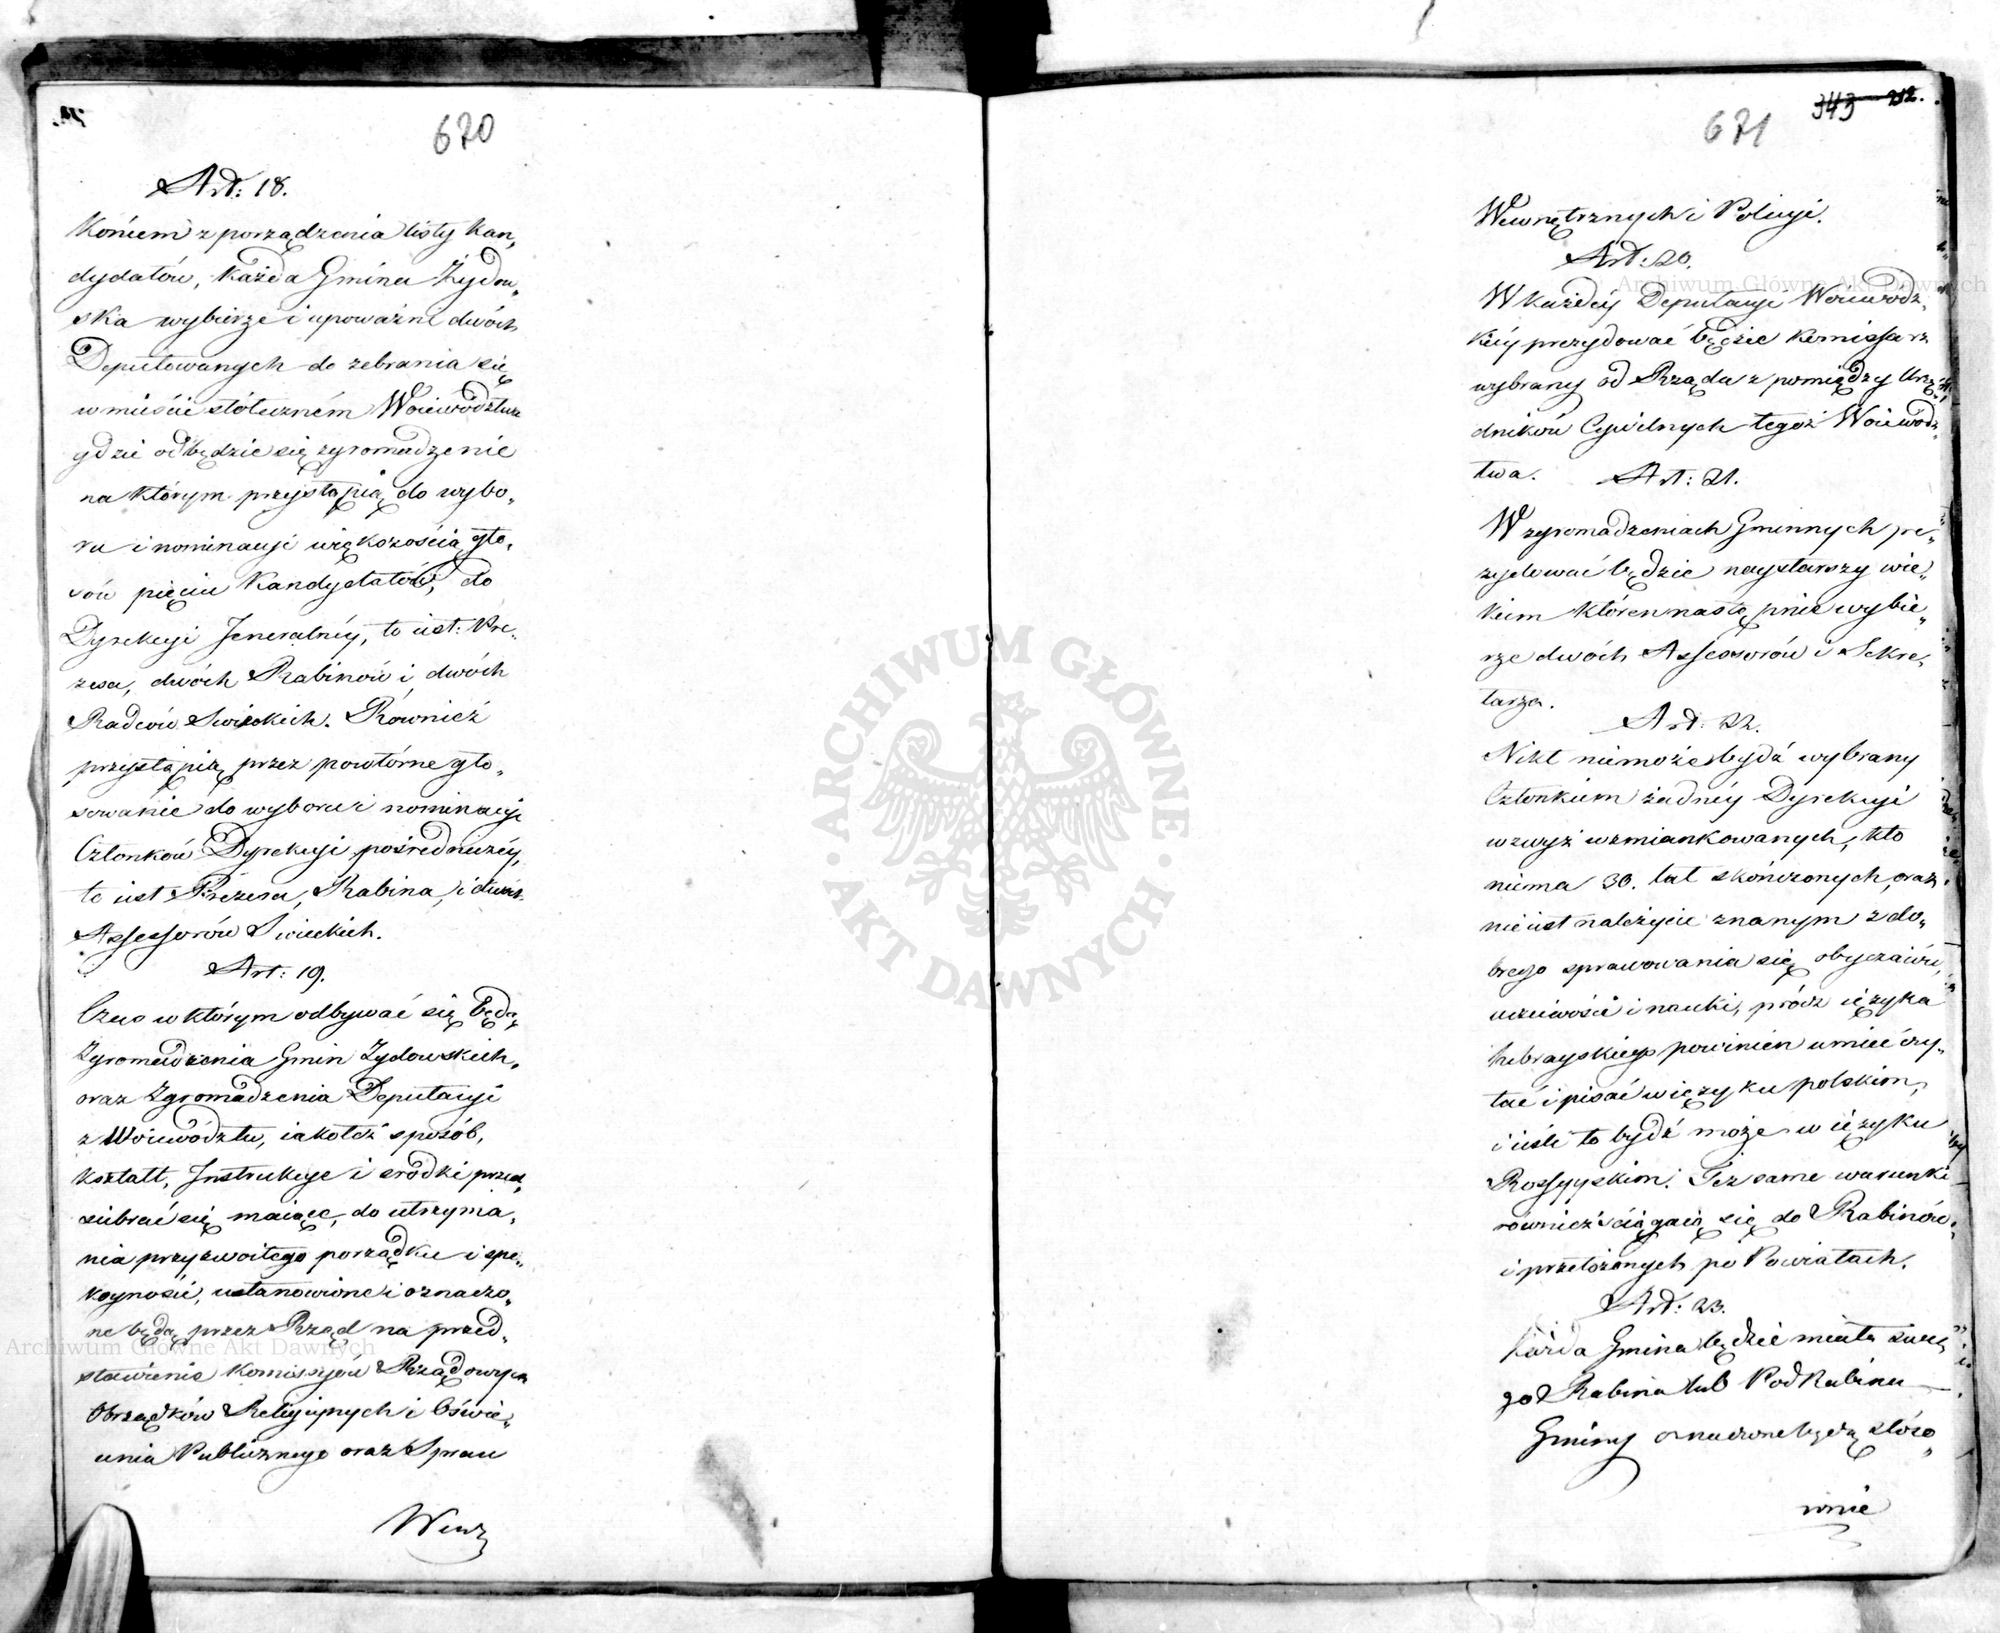 670
Art: 18.
Końcem zporządzenia listy Kan„
dydatów, każda Gmina Żydow„
ska wybierze i upoważni dwóch
Deputowanych do zebrania się
w mieście stołeczném Woiewództwa
gdzie odbędzie się zgromadzenie
na którym przystąpią do wybo„
ru i nominacyi większością gło„
sów pięciu Kandydatów, do
Dyrekcyi Jeneralnéy, to iest: Pre„
zesa, dwóch Rabinów i dwóch
Radców Swieckich. Rownież
przystąpią przez powtórne gło„
sowanie do wyboru i nominacyi
Członków Dyrekcyi pośredniczéy,
to iest Prezesa, Rabina, i dwóch
Assessorów Swieckich.
Art: 19.
Czas w którym odbywać się będą
Zgromadzenia Gmin Żydowskich,
oraz Zgromadzenia Deputacyi
z Woiewództw, iakoteż sposób,
kształt, Instrukcye i srodki przed„
siebrać się maiące, do utrzyma„
nia przyzwoitego porządku i spo„
koyności, ustanowione i oznaczo„
ne będą przez Rząd na przed„
stawienie Kommissyów Rządowych
Obrządków Religiynych i Oświe„
cenia Publicznego oraz Spraw
Wewn
671
343 212.
Wewnętrznych i Policyi.
Art: 20.
W każdéy Deputacyi Woiewódz„
kiéy prezydować będzie Kommissarz
wybrany od Rządu z pomiędzy Urzę„
dników Cywilnych tegoż Woiewódz„
twa.
Art: 21.
W zgromadzeniach Gminnych pre„
zydować będzie naystarszy wie„
kiem któren następnie wybie„
rze dwóch Assessorów i Sekre„
tarza.
Art: 22.
Nikt niemoże bydź wybrany
Członkiem żadnéy Dyrekcyi
wzwyż wzmiankowanych, kto
niema 30. lat skończonych, oraz
nieiest należycie znanym z do„
brego sprawowania się obyczaiów,
uczciwości i nauki, prócz ięzyka
hebrayskiego powinien umieć czy„
tać i pisać w ięzyku polskim,
i ieśli to bydź może w ięzyku
Rossyyskim. Też same warunki
również ściągaią się do Rabinów
i przełożonych po Powiatach.
Art: 23.
Każda Gmina będzie miała swe„
go Rabina lub Pod Rabina
Gminy oznaczone będą stóso„
wnie
ARCHIWUM GŁÓWNE · AKT DAWNYCH ·
Archiwum Główne Akt Dawnych
Archiwum Główne Akt Dawnych